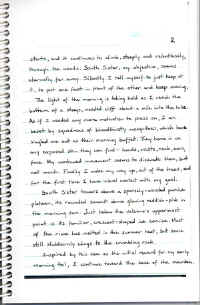 2
starts, and it continues to climb, steeply and relentlessly,
through the woods. South Sister, my objective, looms
eternally far away. Silently I tell myself to just keep at
it, to put one foot in front of the other and keep moving.
The light of the morning is taking hold as I reach the
bottom of a steep, wooded cliff about a mile into the hike.
As if I needed any more motivation to press on, I am
beset by squadrons of bloodthirsty mosquitoes, which have
singled me out as their morning buffet. They home in on
any exposed skin they can find - hands, wrists, neck, ears,
face. My continued movement seems to dissuade them, but
not much. Finally I make my way up, out of the trees, and
for the first time I have visual contact with my goal.
South Sister towers above a sparsely-wooded pumice
plateau, its rounded summit dome glowing reddish-pink in
the morning sun. Just below the volcano's uppermost
point is its familiar, crescent-shaped ice cornice. Most
of the snow has melted in the summer heat, but some
still stubbornly clings to the crumbling rock.
Inspired by this scene as the initial reward for my early
morning toil, I continue toward the base of the mountain.